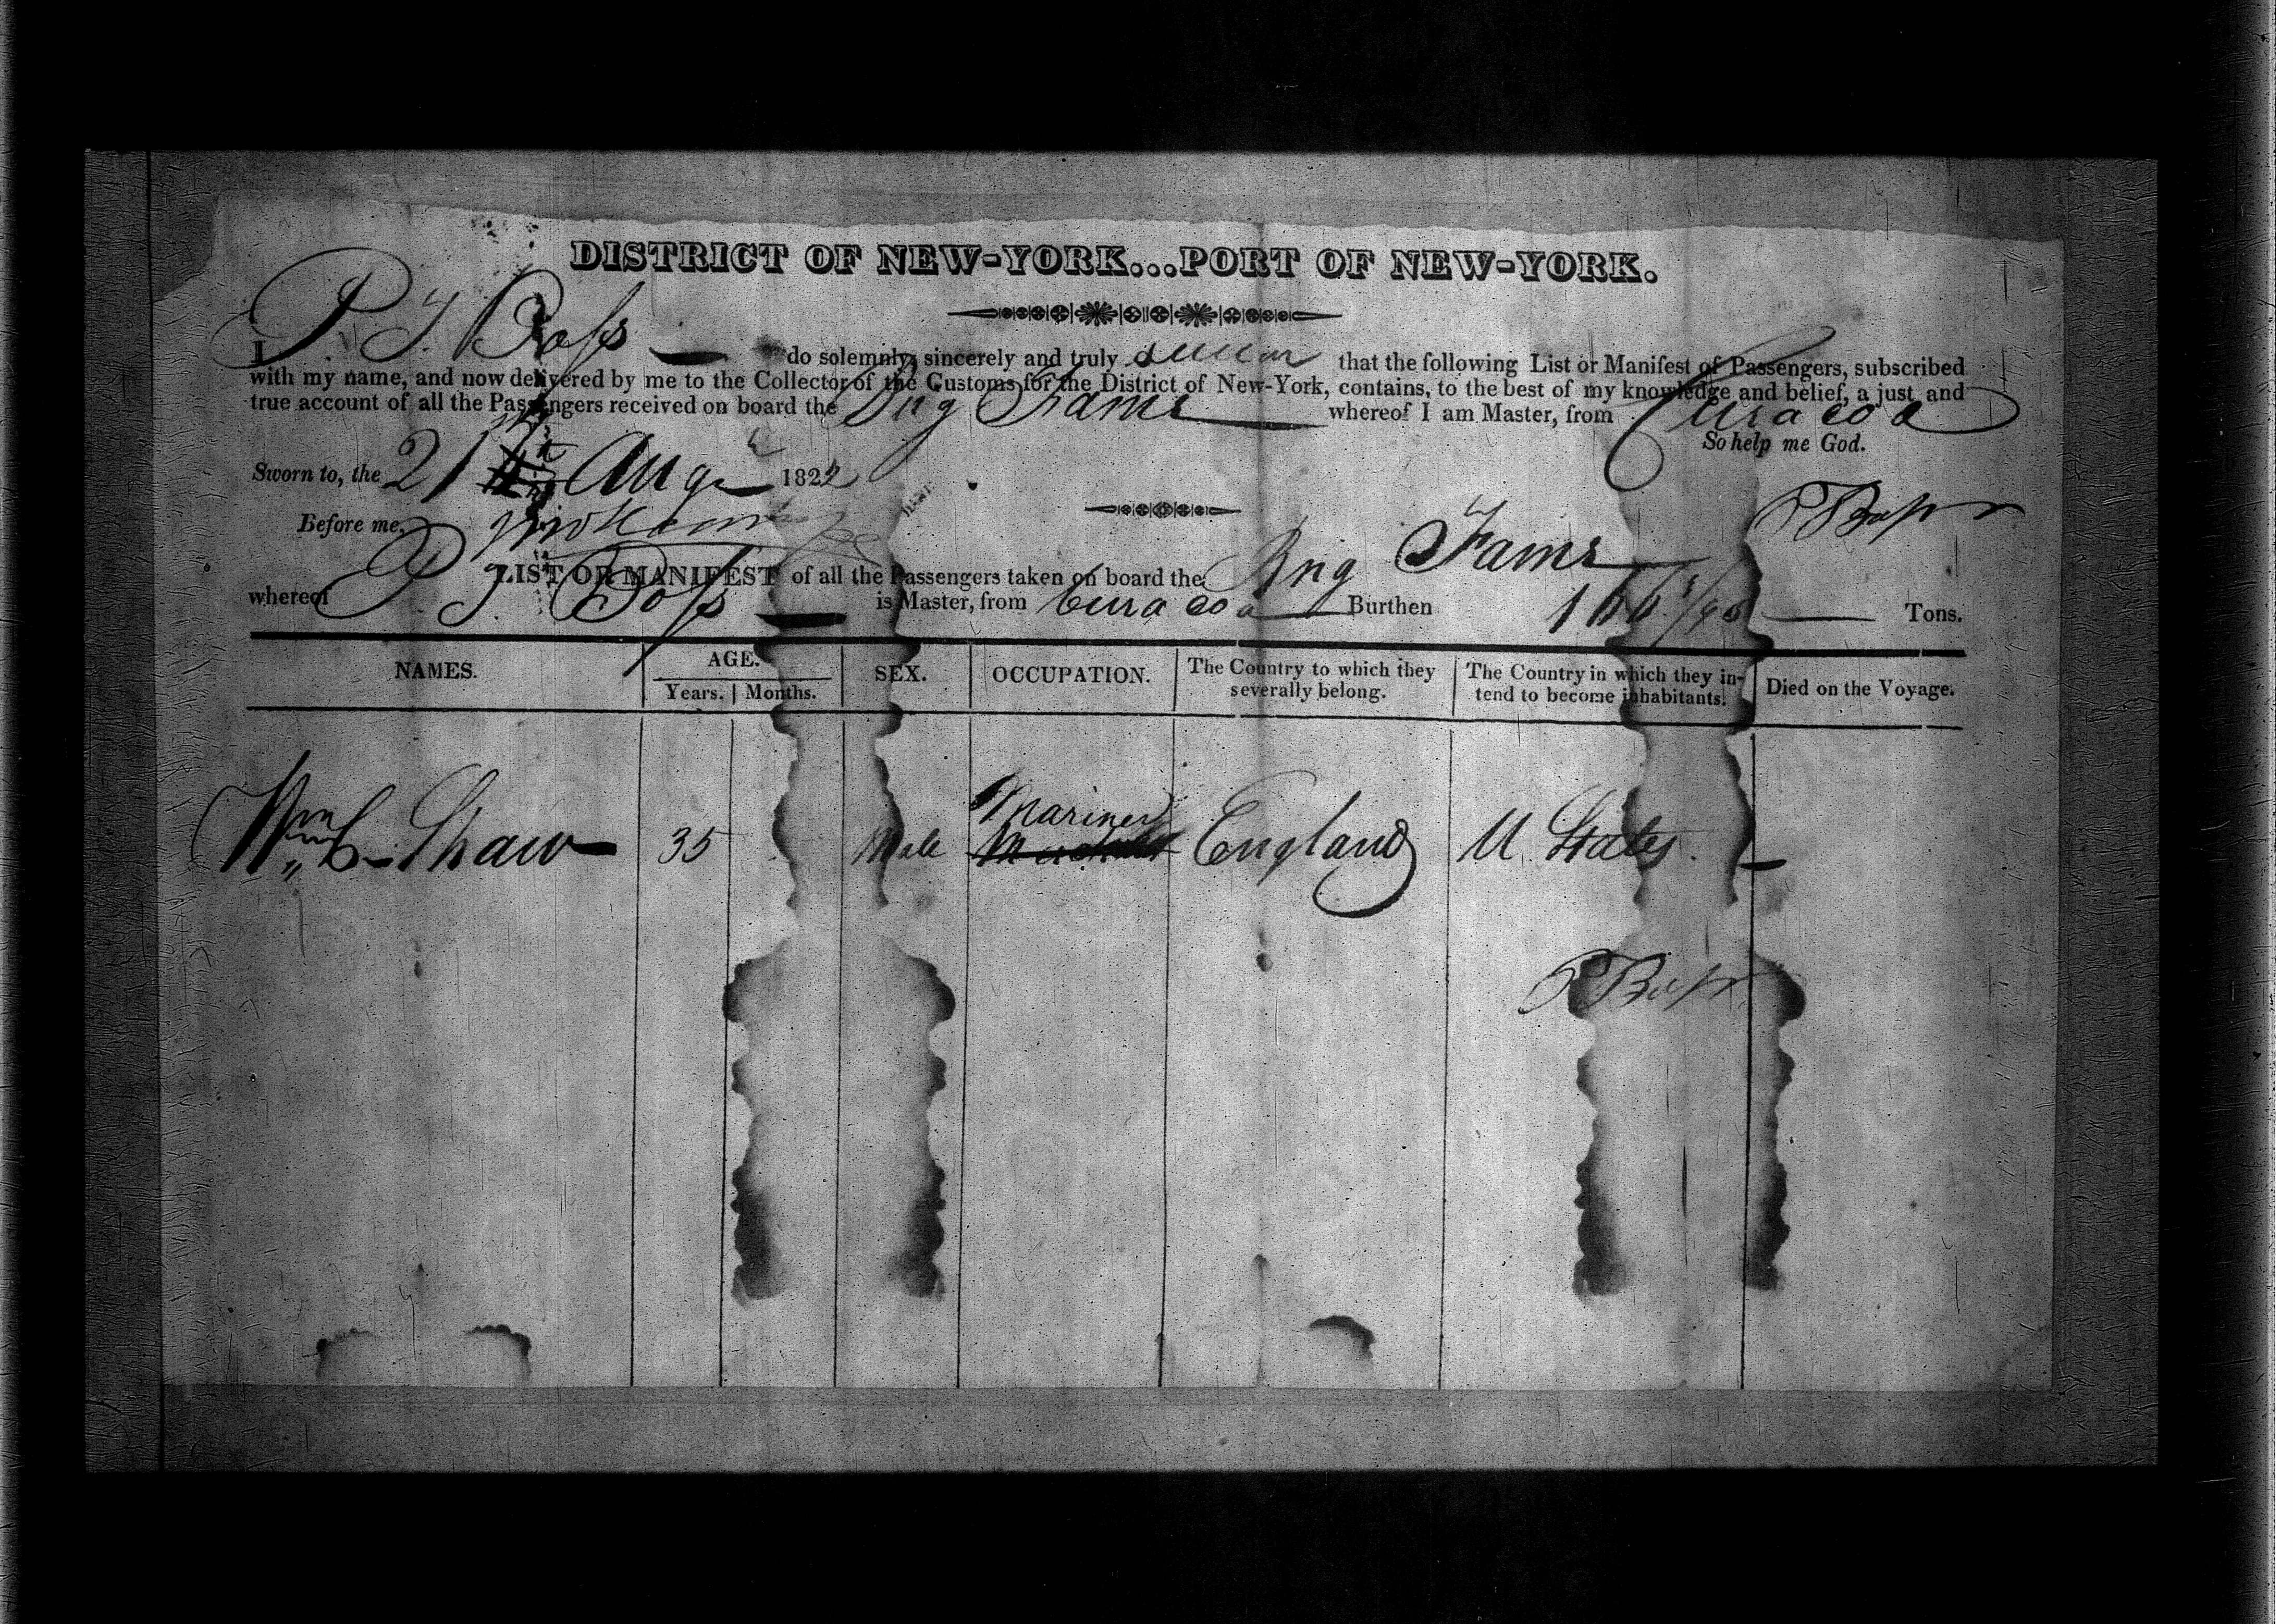 DISTRICT OF NEW-YORK...PORT OF NEW-YORK.
I P. J. Boss do solemnly, sincerely and truly swear that the following List or Manifest of Passengers, subscribed
with my name, and now delivered by me to the Collector of the Customs for the District of New-York, contains, to the best of my knowledge and belief, a just and
true account of all the Passengers received on board the Brig Fame whereof I am Master, from Curacoa
So help me God.
Sworn to, the 21 Aug 1822
Before me,
LIST OR MANIFEST of all the Passengers taken on board the Brig Fame
whereof P. J. Boss is Master, from Curacoa Burthen Tons.
NAMES. AGE. SEX. OCCUPATION. The Country to which they severally belong. The Country in which they intend to become inhabitants. Died on the Voyage.
Years. Months.
Wm Shaw 35 Male Mariner England U States